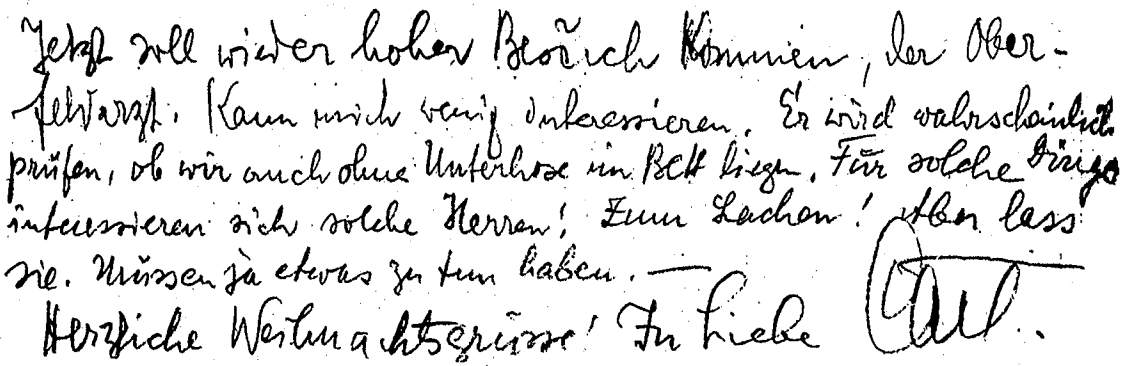 Jetzt soll wieder hoher Besuch kommen, der Ober-
feldarzt. Kann mich wenig interessieren. Er wird wahrscheinlich
prüfen, ob wir auch ohne Unterhose im Bett liegen. Für solche Dinge
interessieren sich solche Herren! Zum Lachen! Aber lass
sie. Müssen ja etwas zu tun haben. —
Herzliche Weihnachtsgrüsse! In Liebe